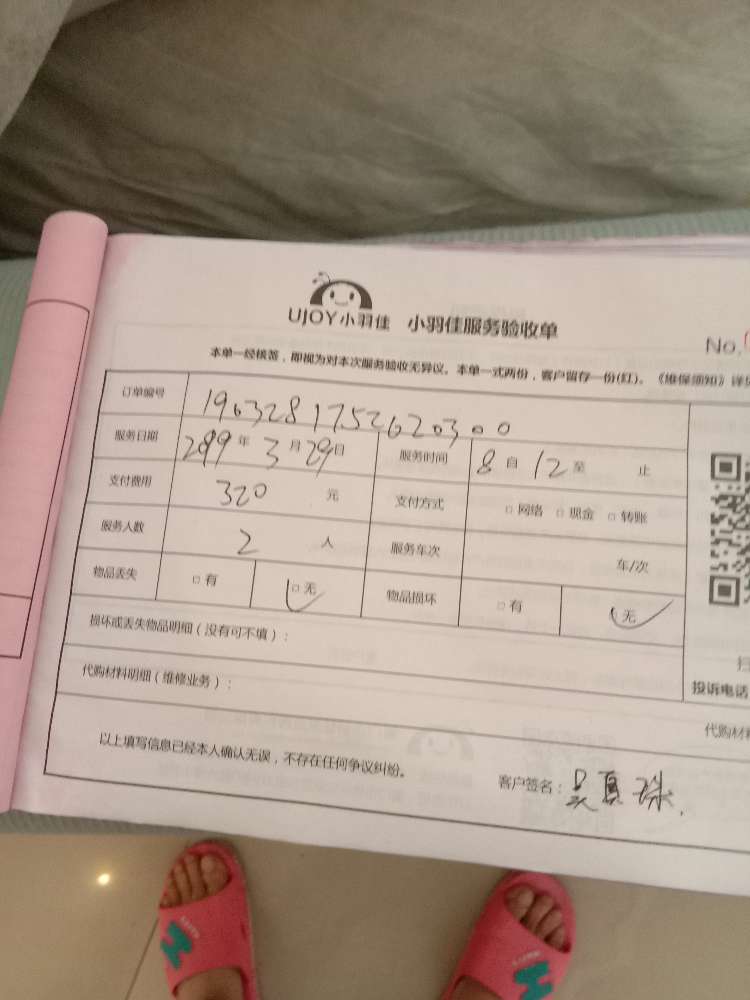 UJOY小羽佳 小羽佳服务验收单
No.
本单一经核签，即视为对本次服务验收无异议。本单一式两份，客户留存一份(红)。《维保须知》详见
订单编号 1963281752620300
服务日期 2019年3月29日 服务时间 8自12至 止
支付费用 320 元 支付方式 □网络 □现金 □转账
服务人数 2 人 服务车次 车/次
物品丢失 □有 □无 物品损坏 □有 □无
损坏或丢失物品明细（没有可不填）：
代购材料明细（维修业务）：
投诉电话
代购材料
以上填写信息已经本人确认无误，不存在任何争议纠纷。
客户签名：吴真珠